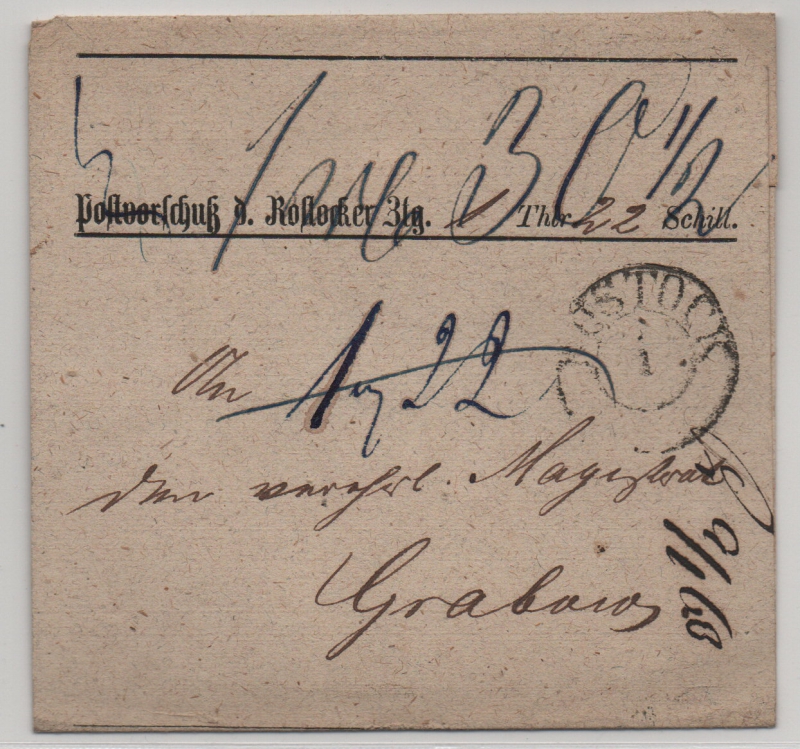 1 30 1/2
Postvorschuß d. Rostocker Ztg. 1 Thlr 22 Schill.
ROSTOCK
1
1
An
1 22
den verehrl. Magistrat
Grabow
9/1 60